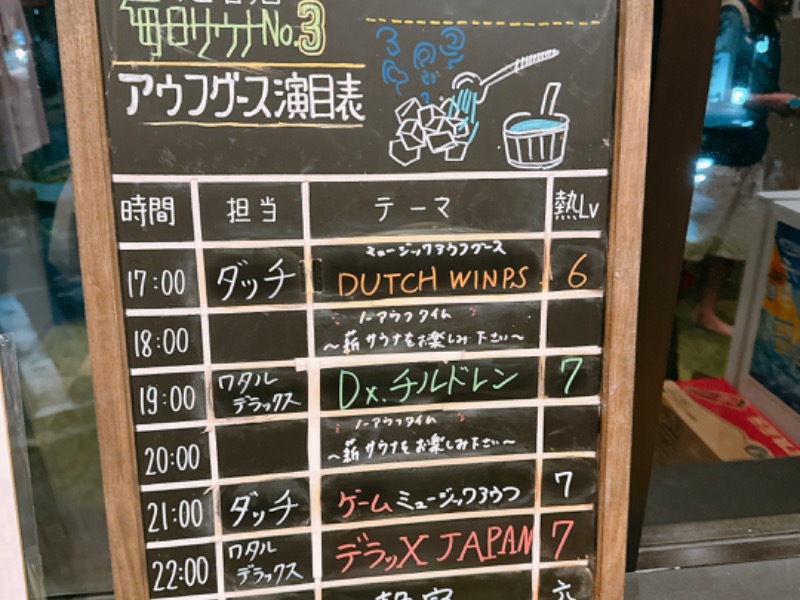 毎日サウナNo.3
アウフグース演目表
時間 担当 テーマ 熱Lv
ミュージックアウフグース
17:00 ダッチ DUTCH WINDS 6
ノーアウフタイム
18:00 〜薪サウナをお楽しみ下さい〜
19:00 ワタルデラックス Dx.チルドレン 7
ノーアウフタイム
20:00 〜薪サウナをお楽しみ下さい〜
21:00 ダッチ ゲームミュージックアウフ 7
22:00 ワタルデラックス デラッX JAPAN 7